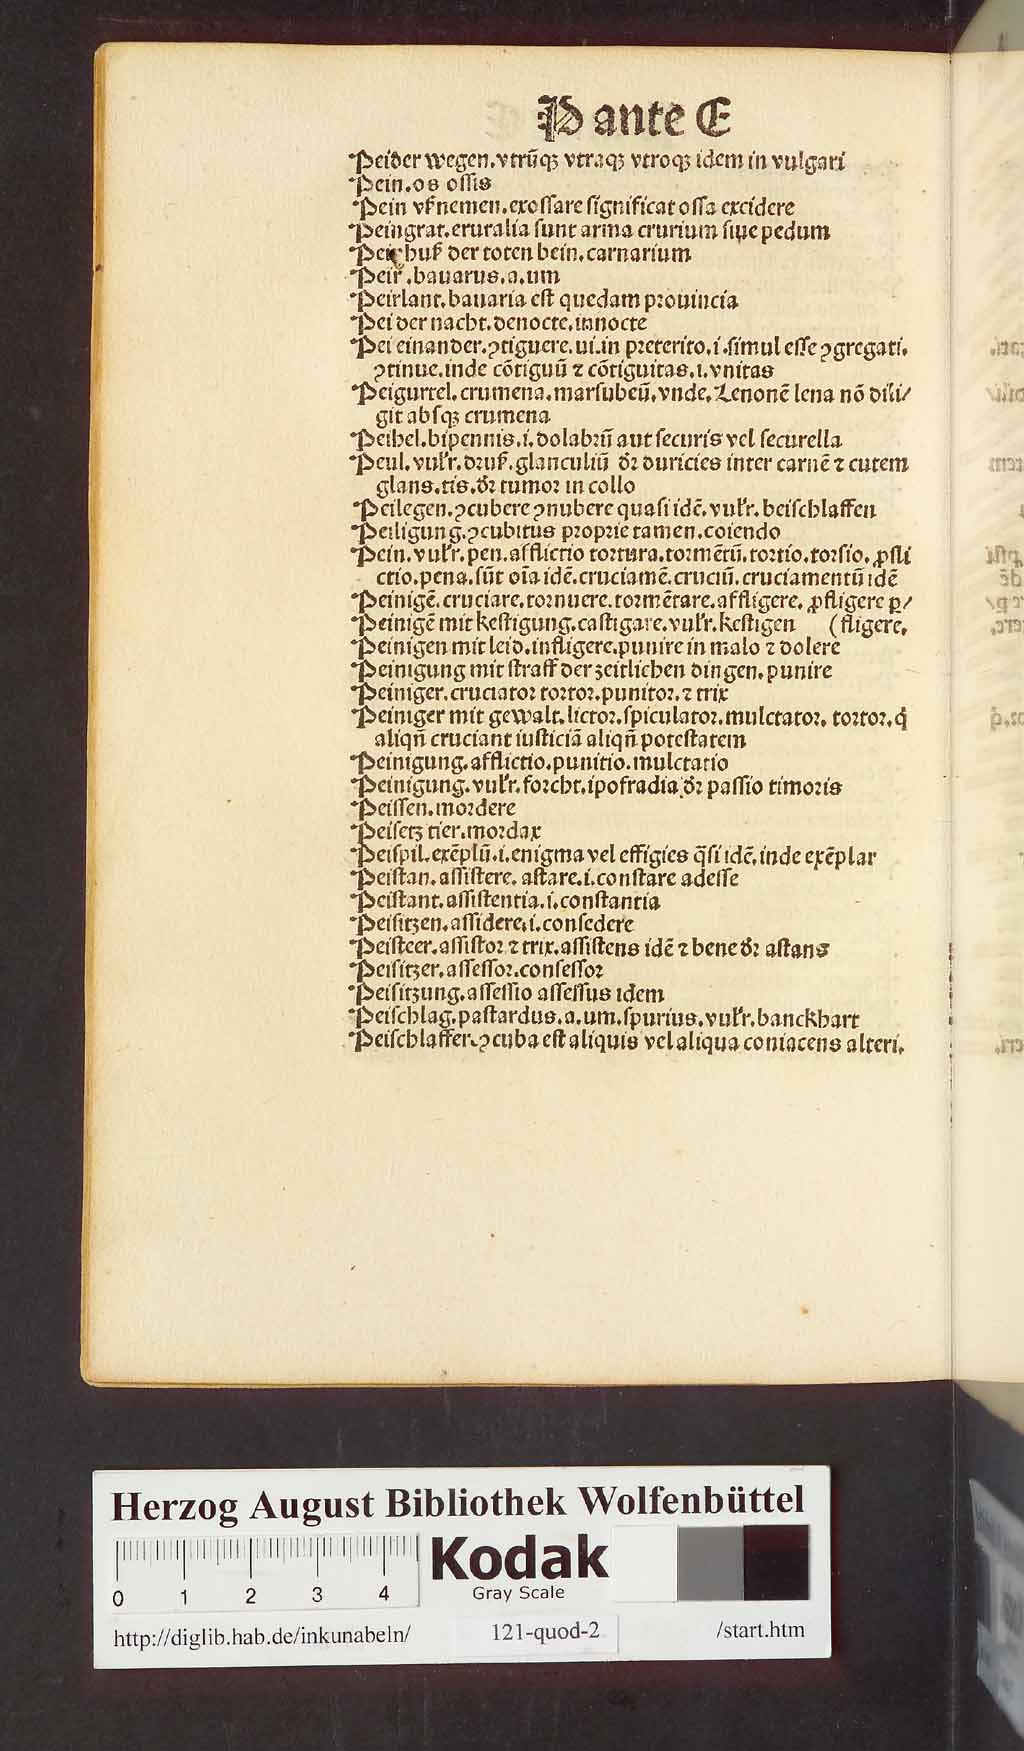 P ante E
Peider wegen. vtrūqꝫ vtraqꝫ vtroqꝫ idem in vulgari
Pein. os ossis
Pein vßnemen. exossare significat ossa excidere
Peingrat. eruralia sunt arma crurium siue pedum
Pei huß der toten bein. carnarium
Peir. bauarus. a. um
Peirlant. bauaria est quedam prouincia
Pei der nacht. denocte. innocte
Pei einander. ꝯtiguere. ui. in preterito. i. simul esse ꝯgregati.
ꝯtinue. inde cōtiguū ⁊ cōtiguitas. i. vnitas
Peigurtel. crumena. marsubeū. vnde. Lenonē lena nō dili/
git absqꝫ crumena
Peihel. bipennis. i. dolabrū aut securis vel securella
Peul. vul̄r. druß. glanculiū dr̄ duricies inter carnē ⁊ cutem
glans. tis. dr̄ tumor in collo
Peilegen. ꝯcubere ꝯnubere quasi idē. vul̄r. beischlaffen
Peiligung. ꝯcubitus proprie tamen. coiendo
Pein. vul̄r. pen. afflictio tortura. tormētū. tortio. torsio. ꝓfli
ctio. pena. sūt oīa idē. cruciamē. cruciū. cruciamentū idē
Peinigē. cruciare. tornuere. tormētare. affligere. ꝓfligere ꝑ/
Peinigē mit kestigung. castigare. vul̄r. kestigen (fligere.
Peinigen mit leid. infligere. punire in malo ⁊ dolere
Peinigung mit straff der zeitlichen dingen. punire
Peiniger. cruciator tortor. punitor. ⁊ trix
Peiniger mit gewalt. lictor. spiculator. mulctator. tortor. q̇
aliqn̄ cruciant iusticiā aliqn̄ potestatem
Peinigung. afflictio. punitio. mulctatio
Peinigung. vul̄r. forcht. ipofradia dr̄ passio timoris
Peissen. mordere
Peisetz tier. mordax
Peispil. exēplū. i. enigma vel effigies q̄si idē. inde exēplar
Peistan. assistere. astare. i. constare adesse
Peistant. assistentia. i. constantia
Peisitzen. assidere. i. consedere
Peisteer. assistor ⁊ trix. assistens idē ⁊ bene dr̄ astans
Peisitzer. assessor. consessor
Peisitzung. assessio assessus idem
Peischlag. pastardus. a. um. spurius. vul̄r. banckhart
Peischlaffer. ꝯcuba est aliquis vel aliqua coniacens alteri.
Herzog August Bibliothek Wolfenbüttel
Kodak
Gray Scale
0 1 2 3 4
http://diglib.hab.de/inkunabeln/ 121-quod-2 /start.htm